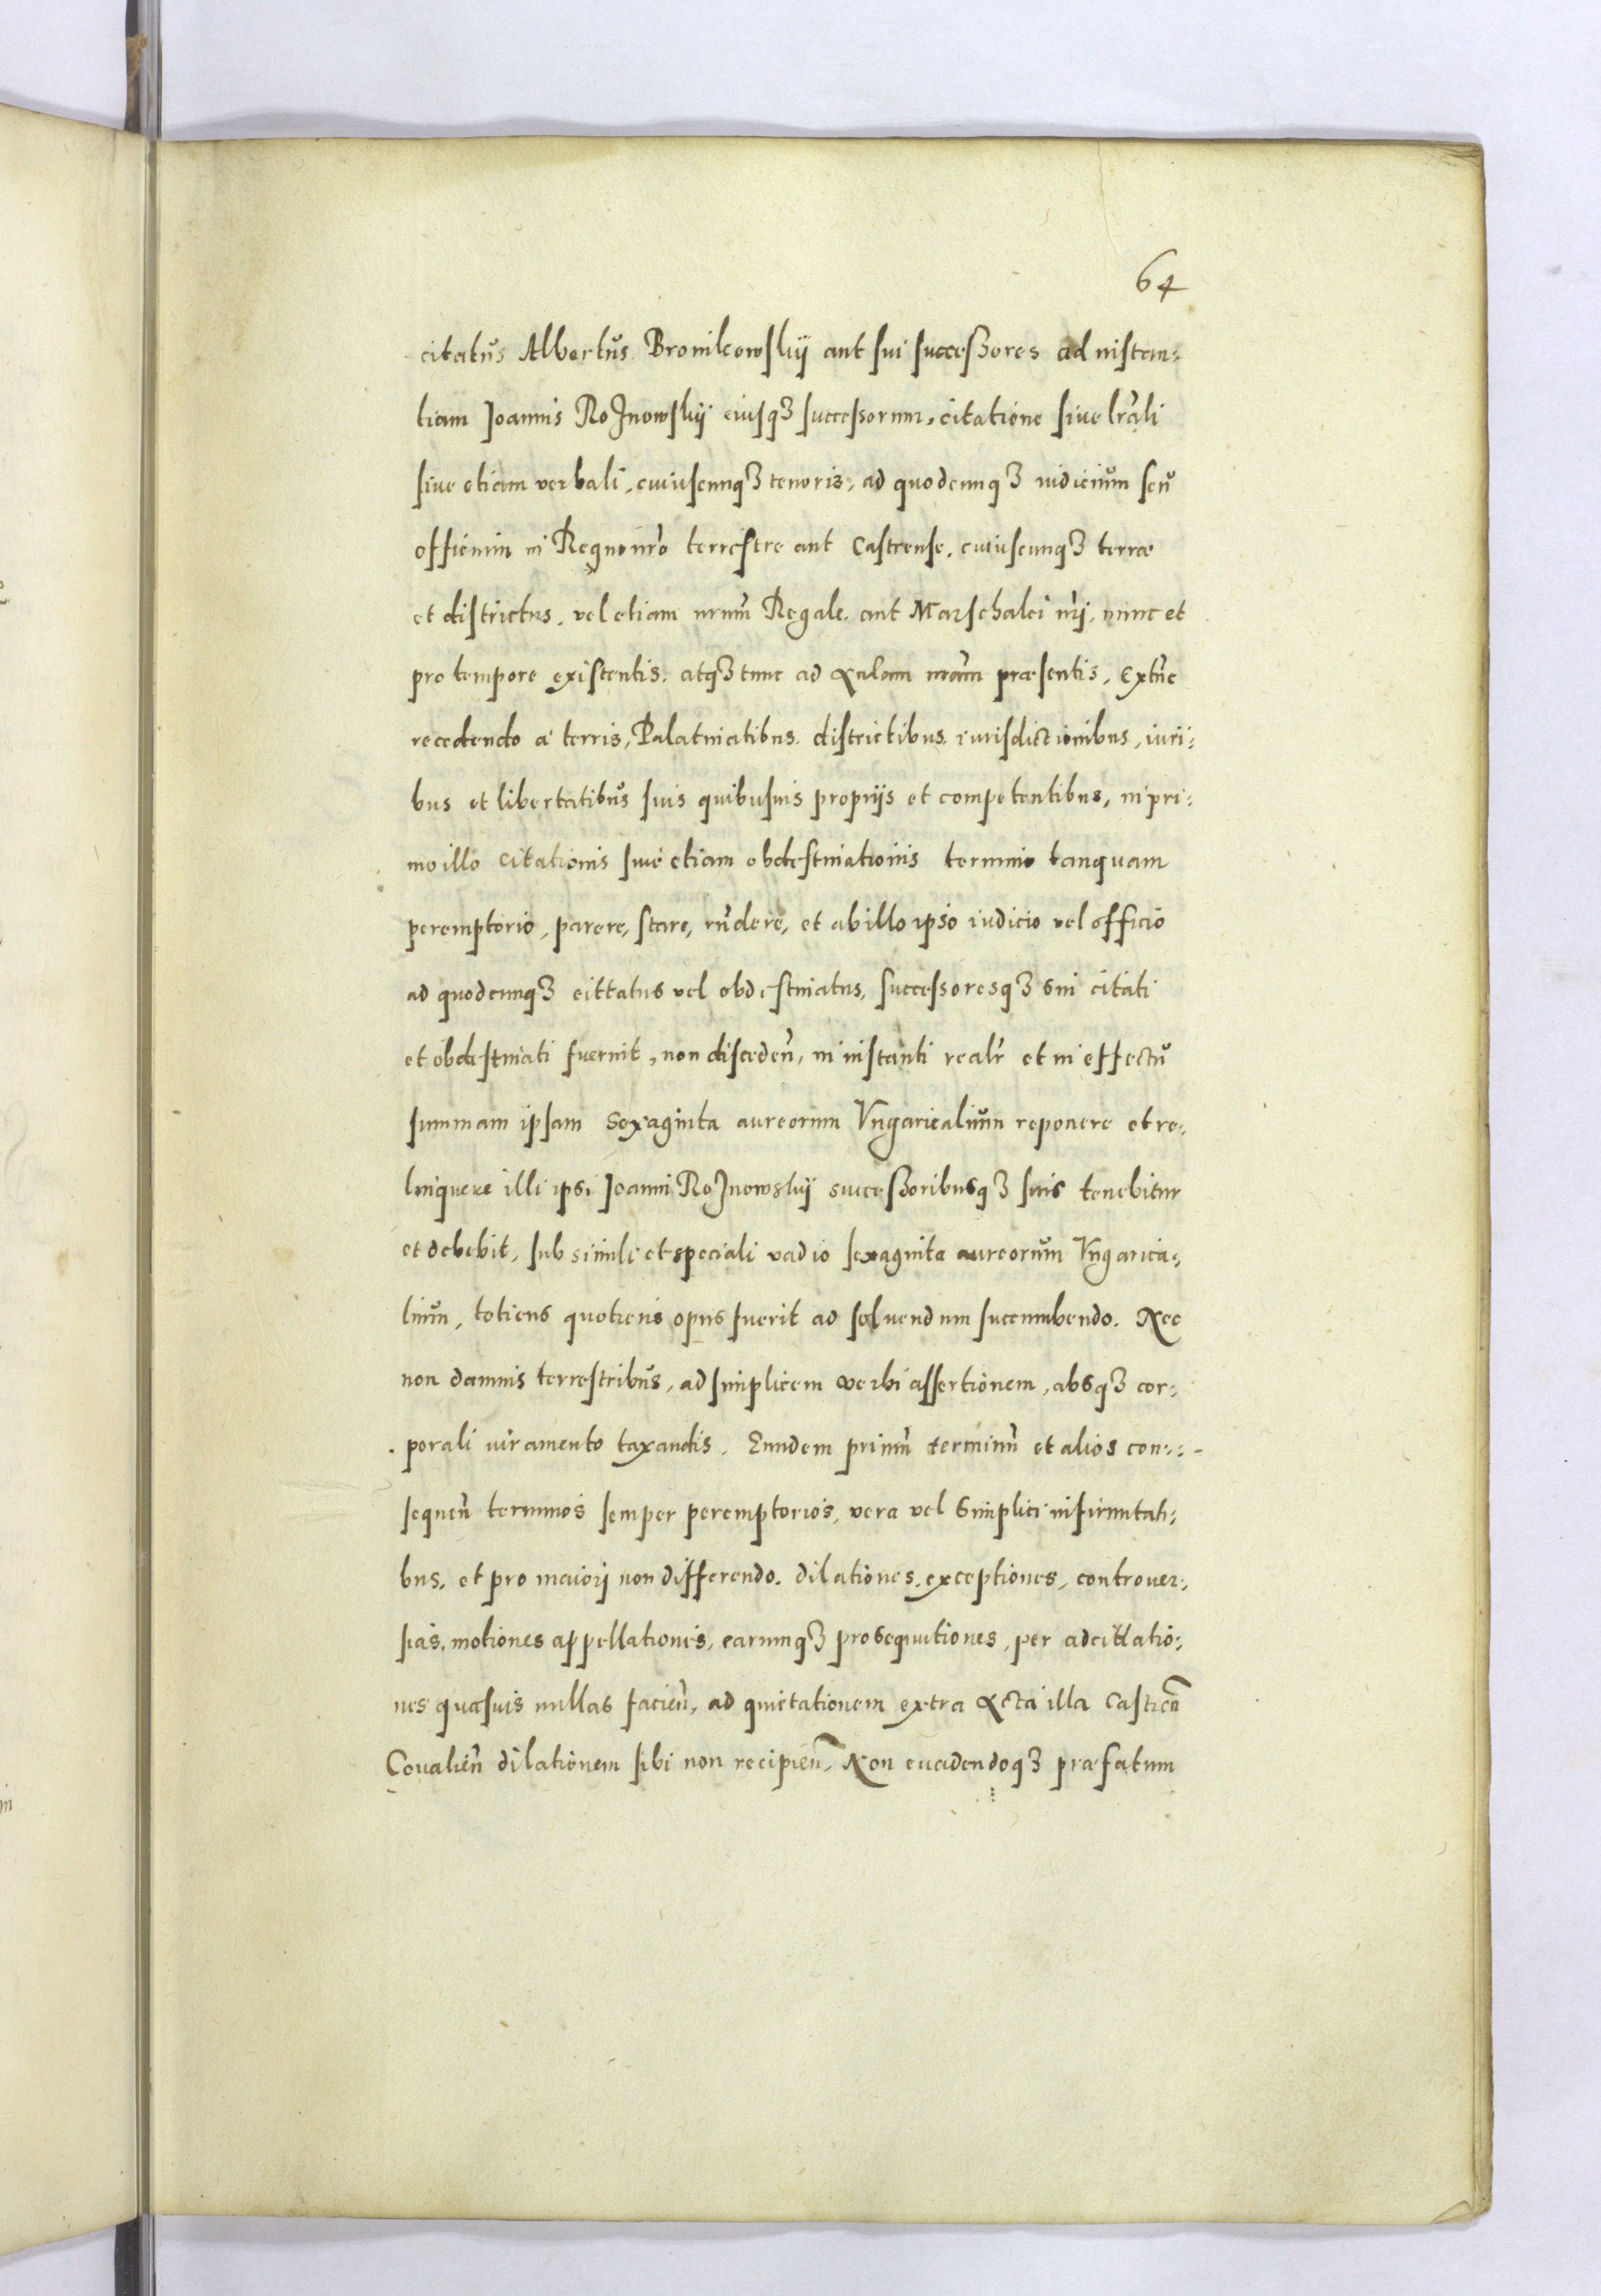 64
citatus Albertus Bronikowskij aut sui successores ad instan:
tiam Joannis Rosnowskij eiusqȝ successorum, citatione siue lr̃ali
siue etiam verbali, cuiuscunqȝ tenoris, ad quodcunqȝ iudicium seu
officium in Regno nr̃o terrestre aut Castrense, cuiuscunqȝ terræ
et districtus, vel etiam nrum̃ Regale, aut Marschalci nr̃i, nunc et
pro tempore existentis, atqȝ tunc ad Aulam nram̃ præsentis, Extũc
recedendo a terris, Palatinatibus, districtibus, iurisdictionibus, iuri:
bus et libertatibus suis quibusuis proprijs et competentibus, in pri:
mo illo citationis siue etiam obdestinationis termino tanquam
peremptorio, parere, stare, rñdere, et ab illo ipso iudicio vel officio
ad quodcunqȝ cittatus vel obdestinatus, successoresqȝ sui citati
et obdestinati fuerint, non disceden̄, in instanti realr̃ et in effectu
summam ipsam sexaginta aureorum Vngaricalium reponere et re:
linquere illi ipsi Joanni Rosnowskij successoribusqȝ suis tenebitur
et debebit, sub simili et speciali vadio sexaginta aureorum Vngarica:
lium, totiens quotiens opus fuerit ad soluendum succumbendo. Nec
non damnis terrestribus, ad simplicem verbi assertionem, absqȝ cor:
porali iuramento taxandis. Eundem primũ terminũ et alios con:
sequen̄ terminos semper peremptorios, vera vel simplici infirmitati:
bus, et pro maiori non differendo, dilationes, exceptiones, controuer:
sias, motiones appellationes, earumqȝ prosequutiones, per adcittatio:
nes quasuis nullas facien̄, ad quietationem extra Acta illa Castren̄
Coualien̄ dilationem sibi non recipien̄, Non euadendoqȝ præfatum